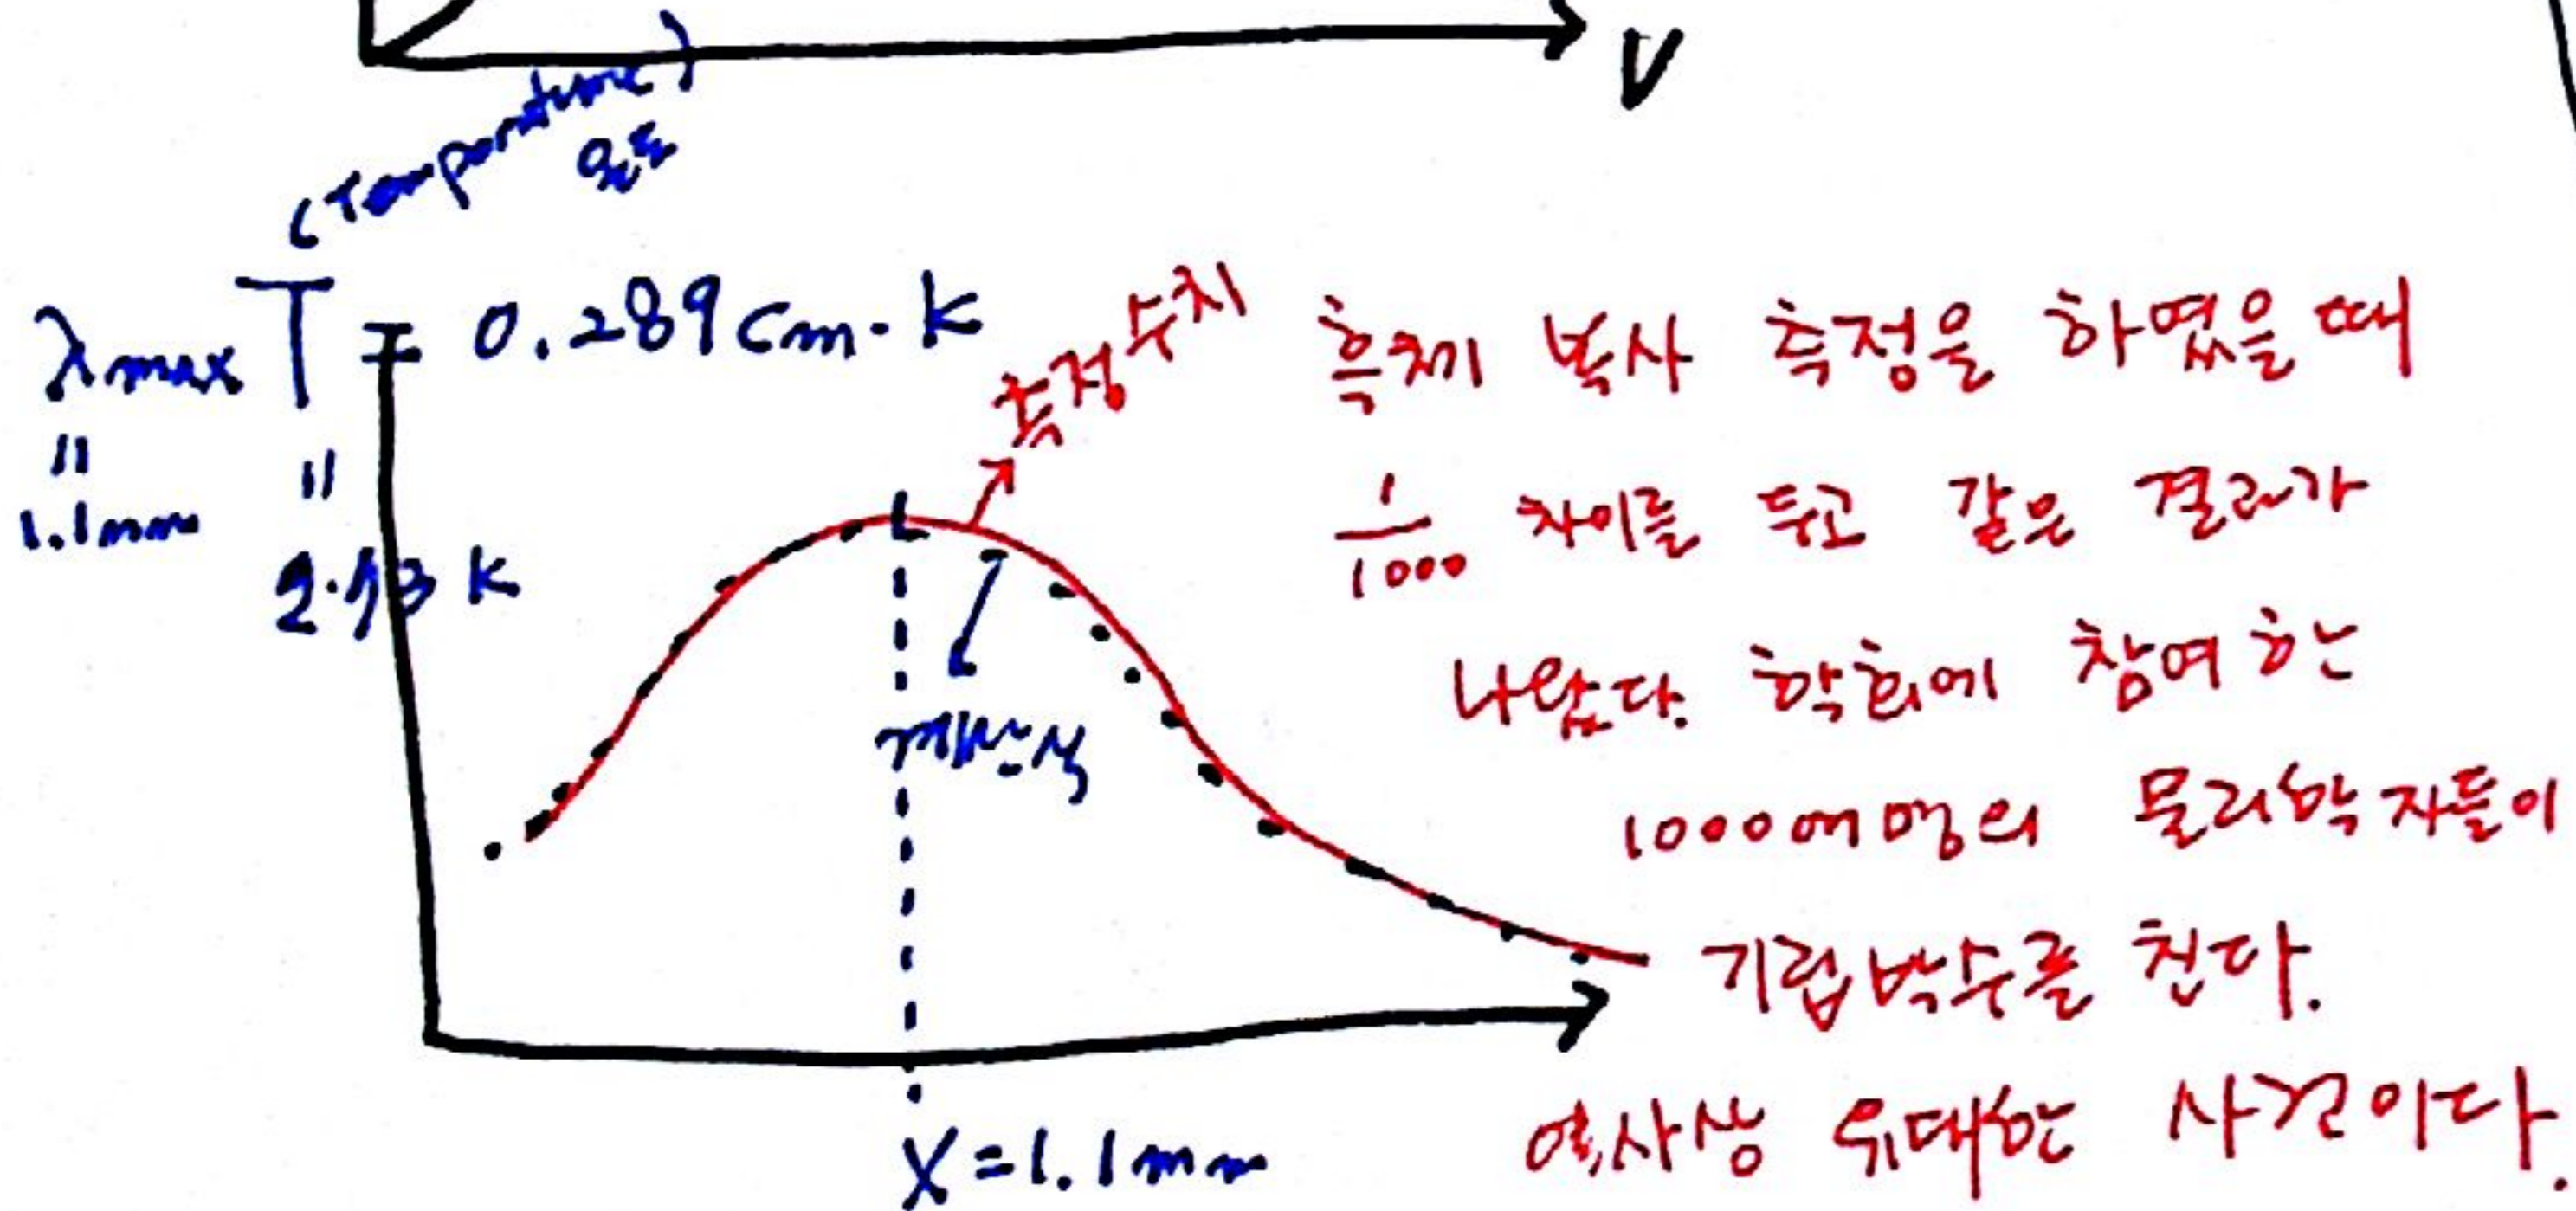 V
(Temperature)
온도
λmax T = 0.289 cm·k
"
1.1mm
"
2.73 k
측정수치
계산식
X = 1.1mm
흑체 복사 측정을 하였을 때
1/1000 차이를 두고 같은 결과가
나왔다. 학회에 참여한
1000여명의 물리학자들이
기립박수를 친다.
역사상 위대한 사건이다.